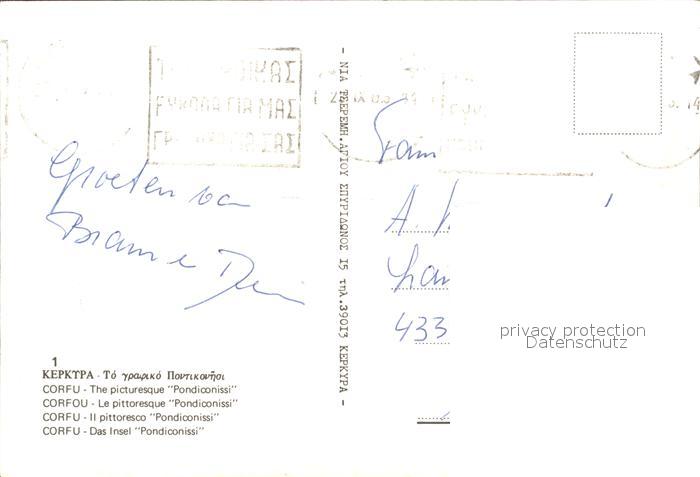 ΕΥΚΟΛΑ ΓΙΑ ΜΑΣ
ΣΑΣ
Groeten van
Bram e
- ΝΙΑ ΤΣΕΡΕΜΗ.ΑΓΙΟΥ ΣΠΥΡΙΔΩΝΟΣ 15 τηλ.39013 ΚΕΡΚΥΡΑ -
Fam
A.
433
privacy protection
Datenschutz
1
ΚΕΡΚΥΡΑ - Τό γραφικό Ποντικονῆσι
CORFU - The picturesque "Pondiconissi"
CORFOU - Le pittoresque "Pondiconissi"
CORFU - Il pittoresco "Pondiconissi"
CORFU - Das Insel "Pondiconissi"